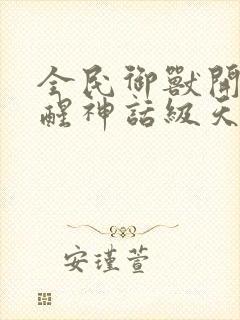 全民御獸開
醒神話級天
安瑾萱